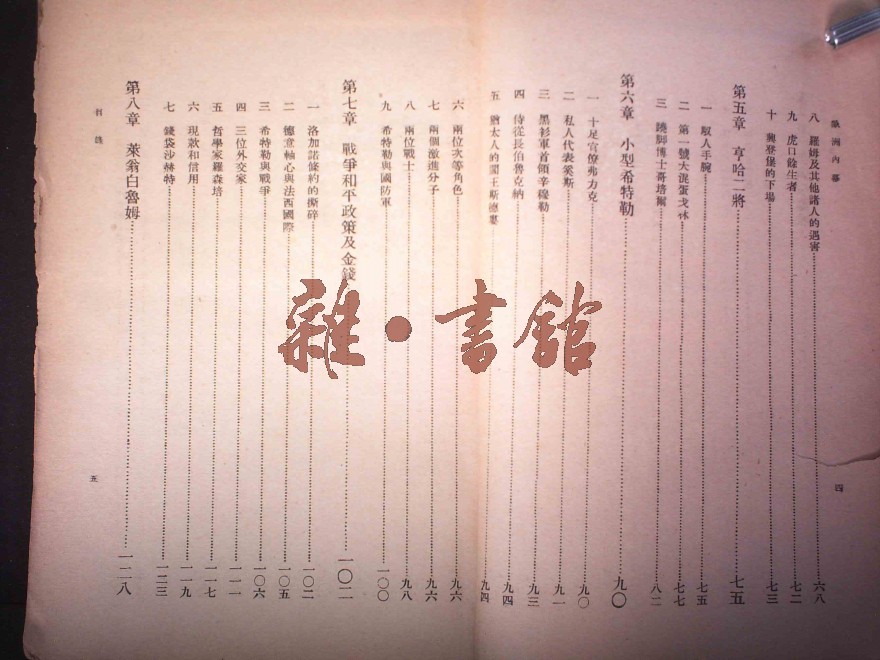 歐洲內幕
八 羅姆及其他諸人的遇害……六八
九 虎口餘生者……七二
十 興登堡的下場……七三
第五章 亨哈二將……七五
一 馭人手腕……七五
二 第一號大混蛋戈林……七七
三 蹺脚博士哥培爾……八二
第六章 小型希特勒……九〇
一 十足官僚弗力克……九〇
二 私人代表奚斯……九一
三 黑衫軍首領辛穆勒……九三
四 侍從長伯魯克納……九四
五 猶太人的閻王斯德婁……九四
四
六 兩位次等角色……九六
七 兩個激進分子……九六
八 兩位戰士……九八
九 希特勒與國防軍……一〇〇
第七章 戰爭和平政策及金錢……一〇二
一 洛加諾條約的撕碎……一〇二
二 德意軸心與法西國際……一〇五
三 希特勒與戰爭……一〇六
四 三位外交家……一一一
五 哲學家羅森培……一一七
六 現款和信用……一一九
七 錢袋沙赫特……一二三
第八章 萊翁白魯姆……一二八
目錄
五
雜·書館